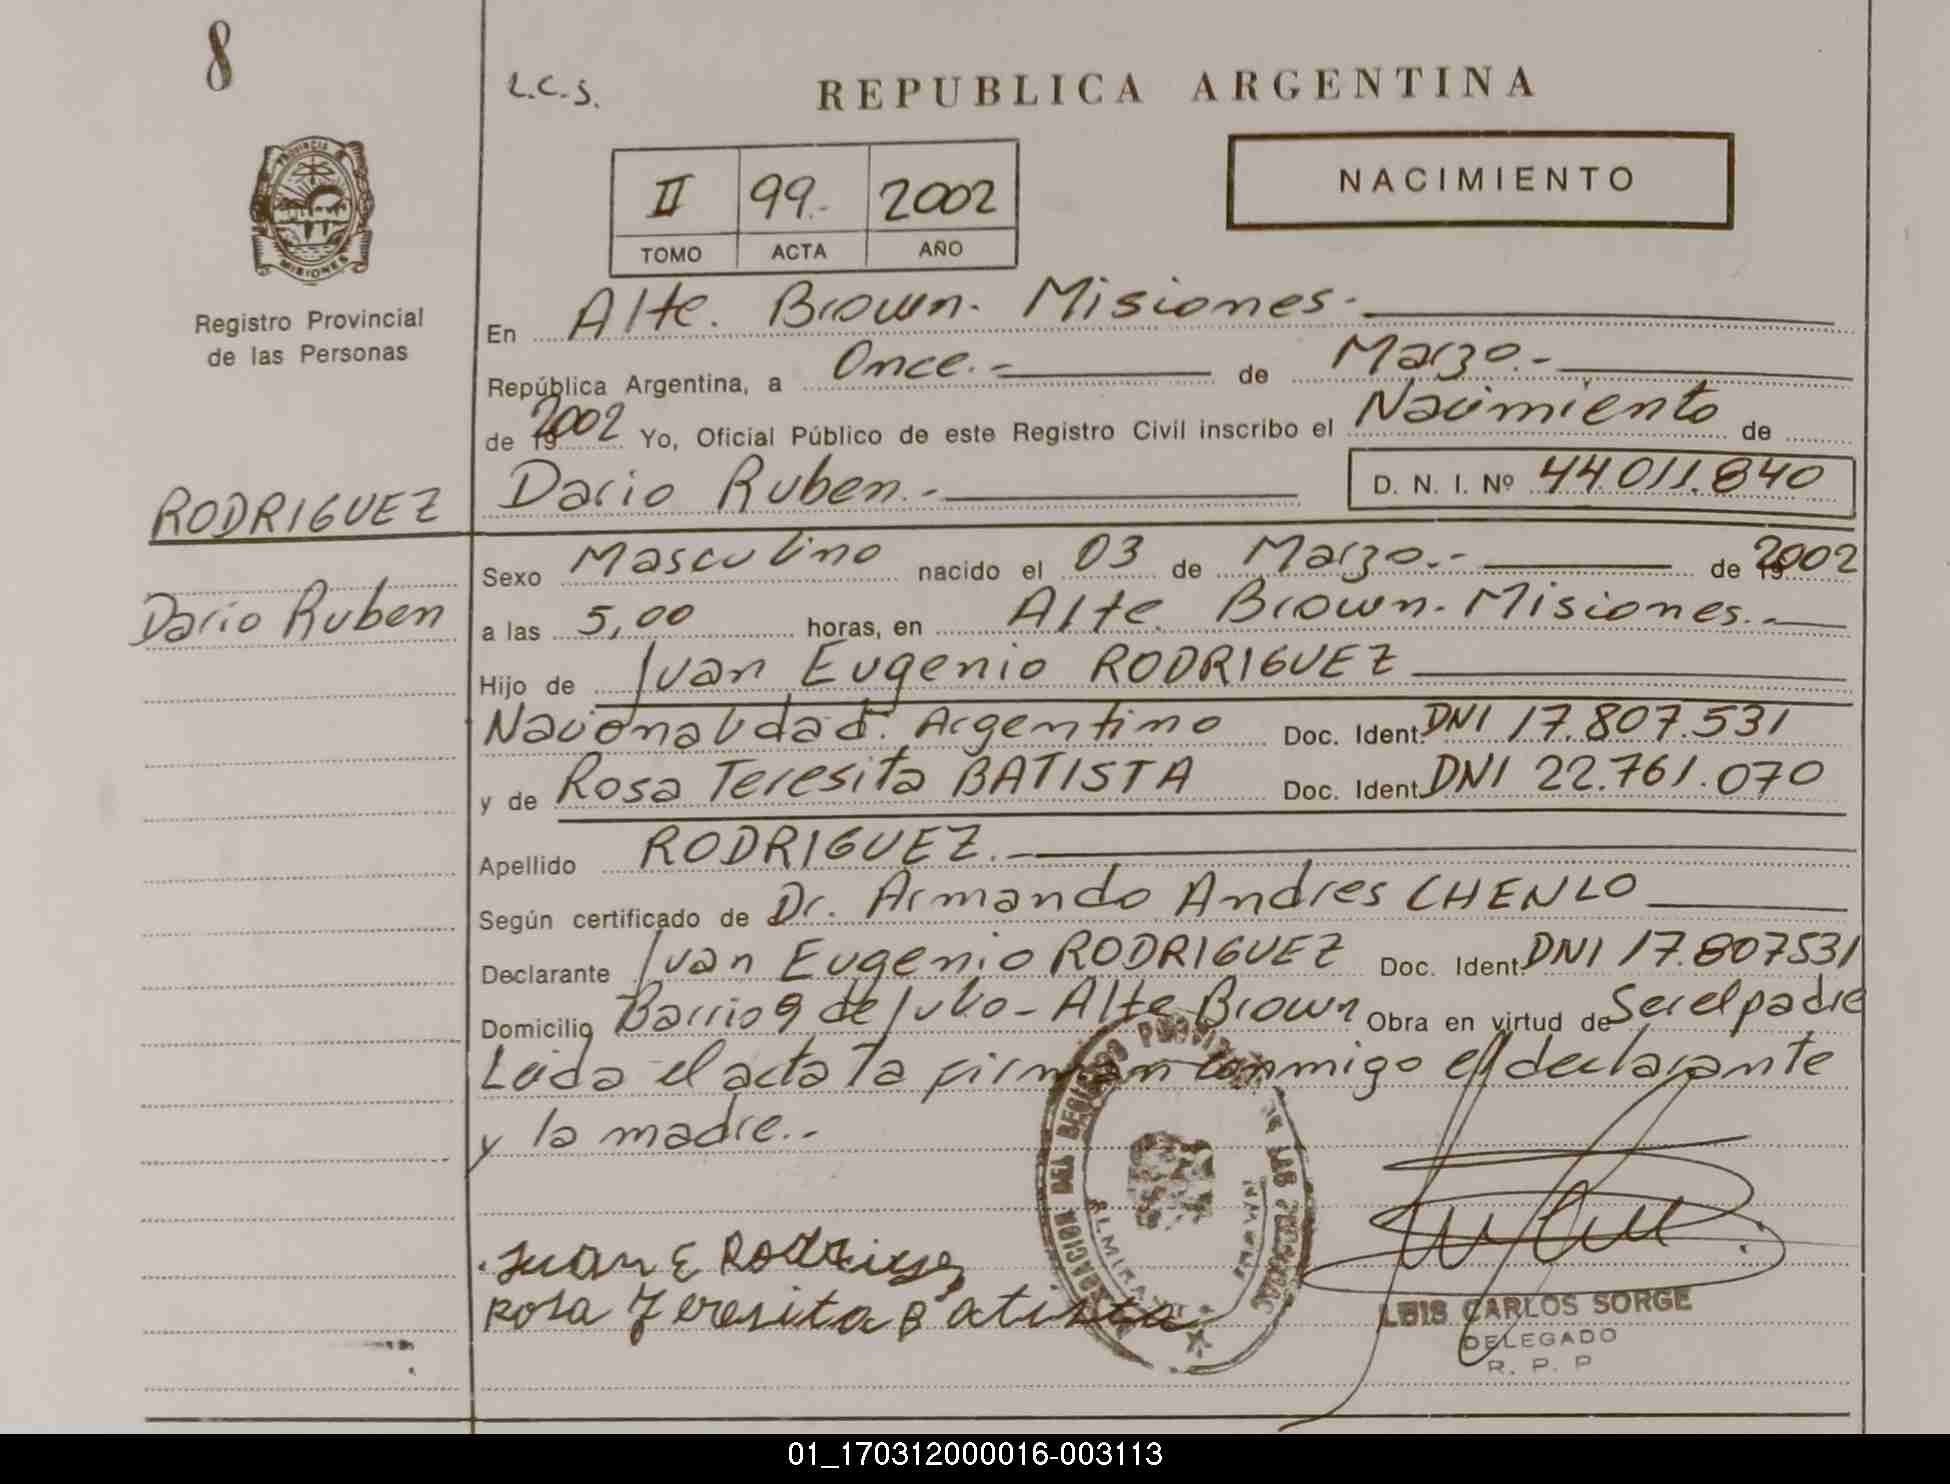 8
L.C.S.
REPUBLICA ARGENTINA
NACIMIENTO
II 99.- 2002
TOMO ACTA AÑO
PROVINCIA
MISIONES
Registro Provincial
de las Personas
En Alte. Brown. Misiones.-
República Argentina, a Once.- de Marzo.-
de 2002 Yo, Oficial Público de este Registro Civil inscribo el Nacimiento de
RODRIGUEZ
Dario Ruben.- D. N. I. Nº 44.011.840
Sexo Masculino nacido el 03 de Marzo.- de 2002
Dario Ruben
a las 5,00 horas, en Alte. Brown. Misiones.-
Hijo de Juan Eugenio RODRIGUEZ
Nacionalidad. Argentino Doc. Ident. DNI 17.807.531
y de Rosa Teresita BATISTA Doc. Ident. DNI 22.761.070
Apellido RODRIGUEZ.-
Según certificado de Dr. Armando Andres CHENLO
Declarante Juan Eugenio RODRIGUEZ Doc. Ident. DNI 17.807531
Domicilio Barrio 9 de Julio - Alte Brown Obra en virtud de Ser el padre
Leida el acta la firman conmigo el declarante
y la madre.-
Juan E Rodriguez
Rosa Teresita Batista
LUIS CARLOS SORGE
DELEGADO
R. P. P
01_170312000016-003113